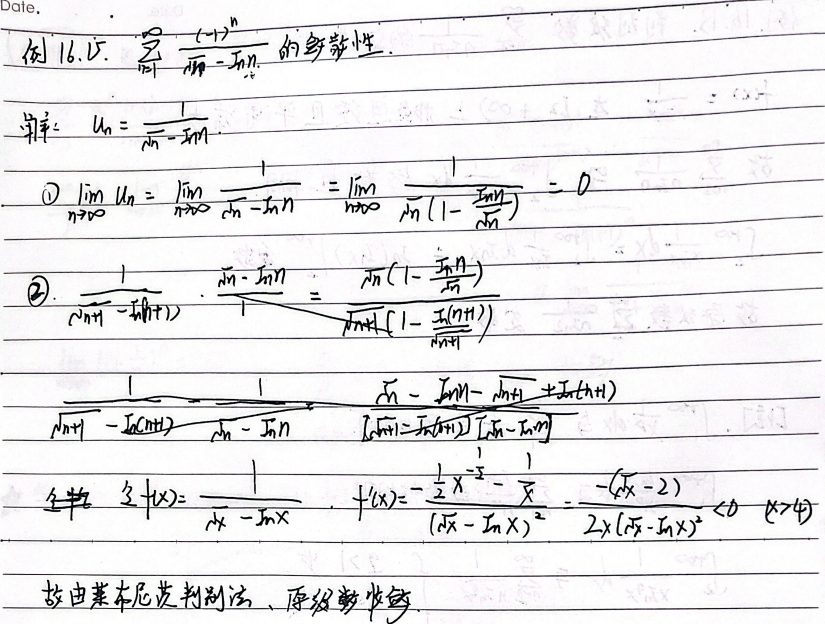 Date.
例16.15. $\sum_{n=1}^{\infty} \frac{(-1)^n}{\sqrt{n} - \ln n}$ 的敛散性.
解: $u_n = \frac{1}{\sqrt{n} - \ln n}$
① $\lim_{n\to\infty} u_n = \lim_{n\to\infty} \frac{1}{\sqrt{n} - \ln n} = \lim_{n\to\infty} \frac{1}{\sqrt{n}(1 - \frac{\ln n}{\sqrt{n}})} = 0$
②. $\frac{1}{\sqrt{n+1} - \ln(n+1)} \cdot \frac{\sqrt{n} - \ln n}{1} = \frac{\sqrt{n}(1 - \frac{\ln n}{\sqrt{n}})}{\sqrt{n+1}[1 - \frac{\ln(n+1)}{\sqrt{n+1}}]}$
$\frac{1}{\sqrt{n+1} - \ln(n+1)} - \frac{1}{\sqrt{n} - \ln n} = \frac{\sqrt{n} - \ln n - \sqrt{n+1} + \ln(n+1)}{[\sqrt{n+1} - \ln(n+1)][\sqrt{n} - \ln n]}$
令 $f(x) = \frac{1}{\sqrt{x} - \ln x}$. $f'(x) = -\frac{\frac{1}{2}x^{-\frac{1}{2}} - \frac{1}{x}}{(\sqrt{x} - \ln x)^2} = \frac{-(\sqrt{x} - 2)}{2x(\sqrt{x} - \ln x)^2} < 0$ $(x>4)$
故由莱布尼茨判别法、原级数收敛.